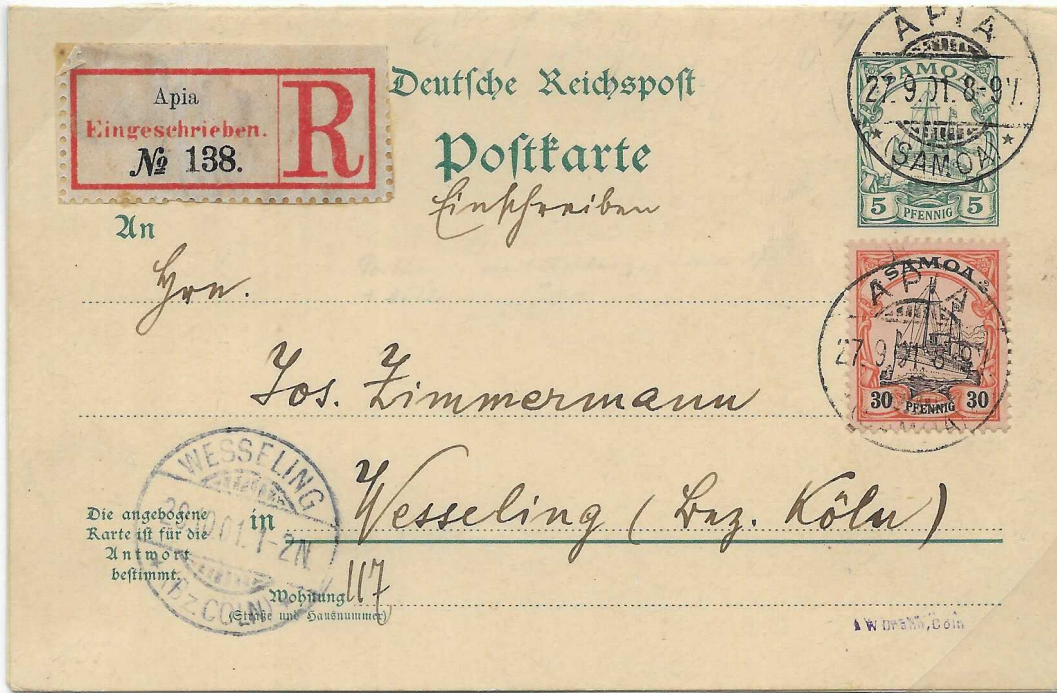 Apia
Eingeschrieben.
№ 138.
R
Deutsche Reichspost
Postkarte
Einschreiben
APIA
27.9.01. 8-9V.
(SAMOA)
SAMOA
5 PFENNIG 5
SAMOA
30 PFENNIG 30
APIA
27.9.01. 8-9V.
(SAMOA)
An
Hrn.
Jos. Zimmermann
in
Wesseling (Bez. Köln)
WESSELING
26.10.01. 1-2N.
(Bz. CÖLN)
Die angebogene
Karte ist für die
Antwort
bestimmt.
Wohnung
(Straße und Hausnummer)
117
Cöln